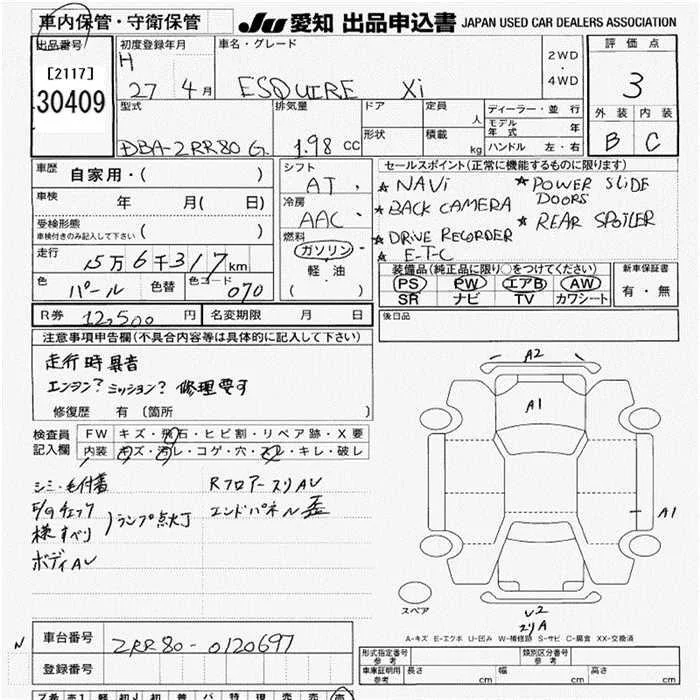 車内保管・守衛保管
JU 愛知 出品申込書 JAPAN USED CAR DEALERS ASSOCIATION
出品番号
[2117]
30409
初度登録年月
H 27 4月
車名・グレード
ESQUIRE Xi
2WD
・
4WD
評価点
3
外装 内装
B C
型式
DBA-ZRR80G.
排気量
1.98 cc
ドア
形状
定員 人
積載 kg
ディーラー・並行
モデル年式 年
ハンドル 左・右
車歴 自家用・( )
車検 年 月( 日)
受検形態
車検付きのみ記入して下さい ( )
走行 15万6千317km
色 パール 色替 色コード 070
シフト
AT.
冷房
AAC.
燃料
ガソリン・
軽油
( )
セールスポイント(正常に機能するものに限ります)
★ NAVi ★ POWER SLIDE DOORS
★ BACK CAMERA ★ REAR SPOILER
★ DRIVE RECORDER
★ E-T-C
装備品(純正品に限り○をつけてください)
PS PW エアB AW
SR ナビ TV カワシート
新車保証書
有・無
R券 12,500円 名変期限 月 日
後日品
注意事項申告欄(不具合内容等は具体的に記入して下さい)
走行時異音
エンジン?ミッション?修理要す
修復歴 有(箇所 )
検査員記入欄
FW キズ・飛石・ヒビ割・リペア跡・X要
内装 キズ・汚レ・コゲ・穴・スレ・キレ・破レ
シミ・毛付着
E/Gチェック
横すべり
)ランプ点灯
ボディAU
Rフロアースリ AU
エンドパネル歪
A2
A1
A1
スペア
U2
スリA
A-キズ E-エクボ U-凹み W-補修跡 S-サビ C-腐食 XX-交換済
N
車台番号 ZRR80-0120697
登録番号
形式指定番号 参考
類別区分番号 参考
車庫証明用 参考 長さ cm 幅 cm 高さ cm